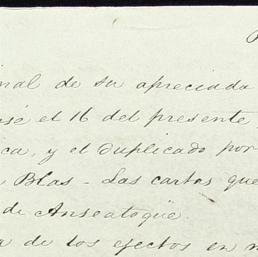 nal de su apreciada
sé el 16 del presente
ca, y el duplicado por
Blas - Las cartas que
de Anseatoque.
a de los efectos en